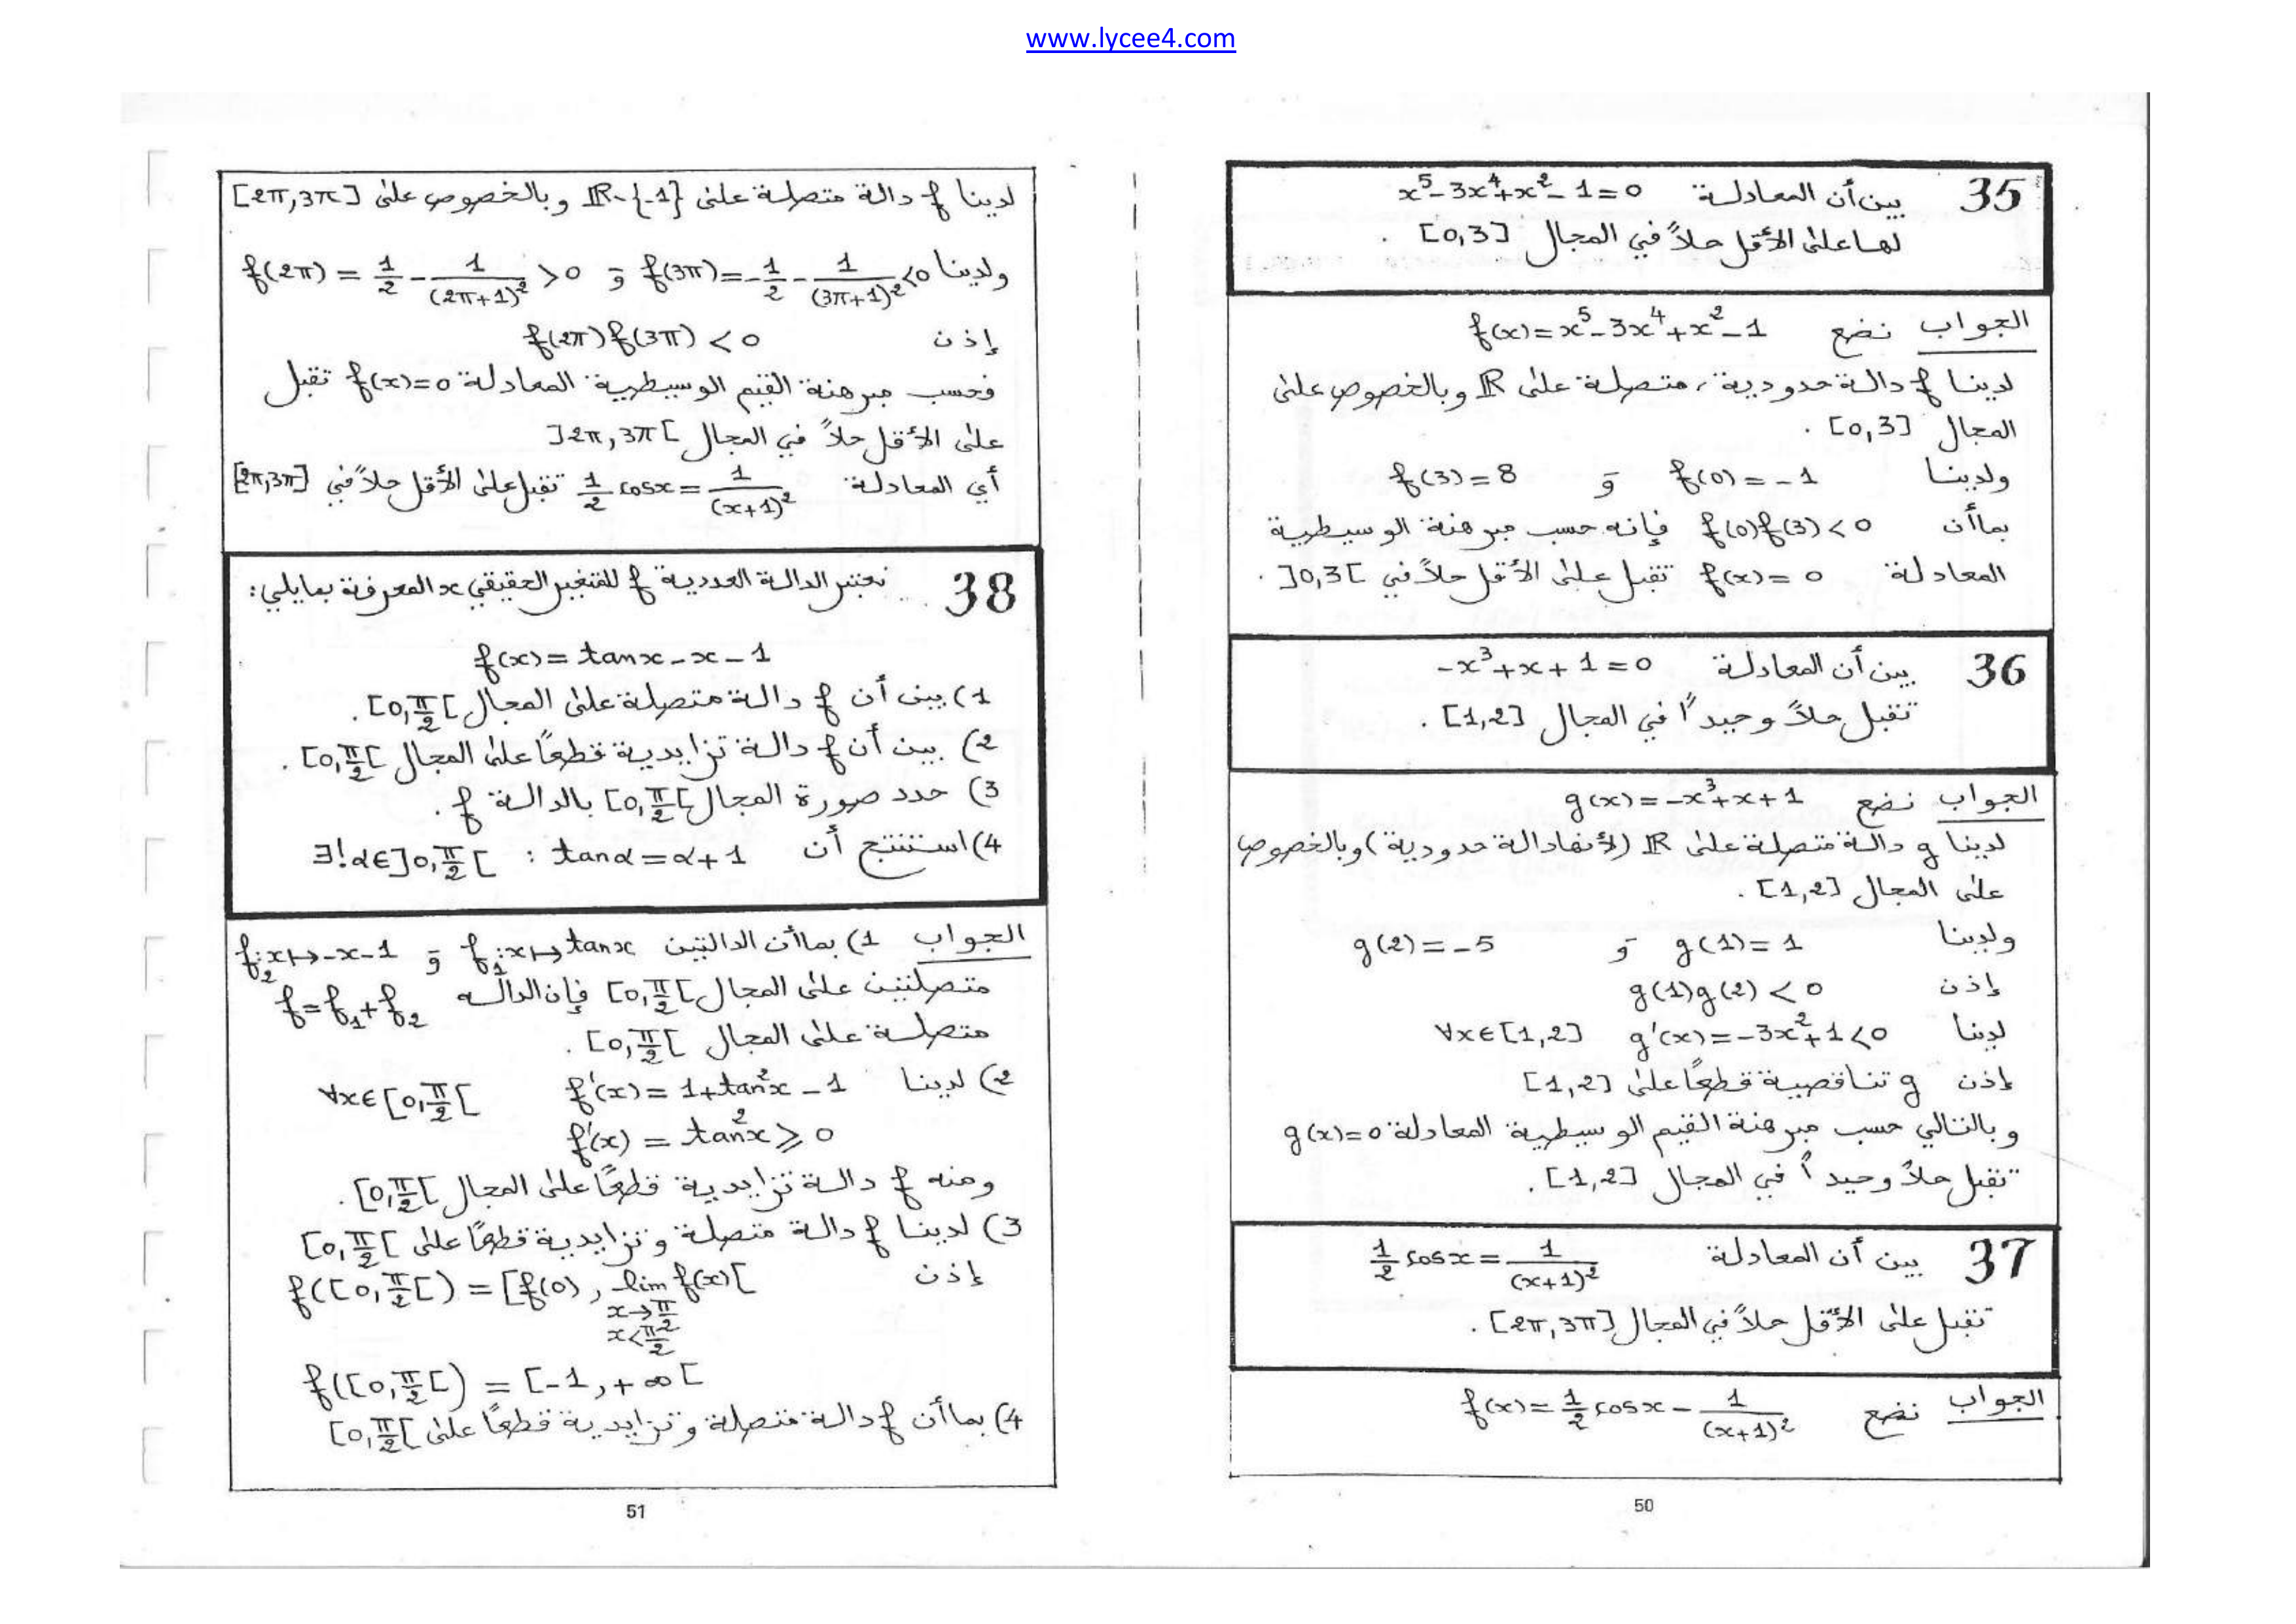 www.lycee4.com
35 بين أن المعادلة x⁵-3x⁴+x²-1=0
لها على الأقل حلاً في المجال [0,3] .
الجواب نضع f(x)=x⁵-3x⁴+x²-1
لدينا f دالة حدودية، متصلة على ℝ وبالخصوص على
المجال [0,3] .
ولدينا f(0)=-1 و f(3)=8
بما أن f(0)f(3)<0 فإنه حسب مبرهنة الوسيطية
المعادلة f(x)=0 تقبل على الأقل حلاً في ]0,3[ .
36 بين أن المعادلة -x³+x+1=0
تقبل حلاً وحيداً في المجال [1,2] .
الجواب نضع g(x)=-x³+x+1
لدينا g دالة متصلة على ℝ (لأنها دالة حدودية) وبالخصوص
على المجال [1,2] .
ولدينا g(1)=1 و g(2)=-5
إذن g(1)g(2)<0
لدينا g'(x)=-3x²+1<0 ∀x∈[1,2]
إذن g تناقصية قطعاً على [1,2]
وبالتالي حسب مبرهنة القيم الوسيطية المعادلة g(x)=0
تقبل حلاً وحيداً في المجال [1,2] .
37 بين أن المعادلة ½cosx=1/(x+1)²
تقبل على الأقل حلاً في المجال [2π,3π] .
الجواب نضع f(x)=½cosx-1/(x+1)²
50
لدينا f دالة متصلة على ℝ-{-1} وبالخصوص على [2π,3π]
ولدينا f(3π)=-1/2-1/(3π+1)²<0 و f(2π)=1/2-1/(2π+1)²>0
إذن f(2π)f(3π)<0
فحسب مبرهنة القيم الوسيطية المعادلة f(x)=0 تقبل
على الأقل حلاً في المجال ]2π,3π[
أي المعادلة ½cosx=1/(x+1)² تقبل على الأقل حلاً في [2π,3π]
38 نعتبر الدالة العددية f للمتغير الحقيقي x المعرفة بمايلي:
f(x)=tanx-x-1
1) بين أن f دالة متصلة على المجال [0,π/2[ .
2) بين أن f دالة تزايدية قطعاً على المجال [0,π/2[ .
3) حدد صورة المجال [0,π/2[ بالدالة f .
4) استنتج أن ∃!α∈]0,π/2[ : tanα=α+1
الجواب 1) بما أن الدالتين f₁:x↦tanx و f₂:x↦-x-1
متصلتين على المجال [0,π/2[ فإن الدالة f=f₁+f₂
متصلة على المجال [0,π/2[ .
2) لدينا f'(x)=1+tan²x-1 ∀x∈[0,π/2[
f'(x)=tan²x≥0
ومنه f دالة تزايدية قطعاً على المجال [0,π/2[ .
3) لدينا f دالة متصلة وتزايدية قطعاً على [0,π/2[
إذن f([0,π/2[)=[f(0), lim f(x)[
x→π/2
x<π/2
f([0,π/2[)=[-1,+∞[
4) بما أن f دالة متصلة وتزايدية قطعاً على [0,π/2[
51